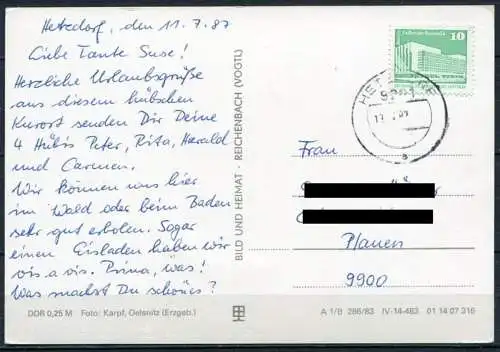 Hetzdorf, den 11.7.87
Liebe Tante Suse!
Herzliche Urlaubsgrüße
aus diesem hübschen
Kurort senden Dir Deine
4 Hübis Peter, Rita, Harald
und Carmen.
Wir können uns hier
im Wald oder beim Baden
sehr gut erholen. Sogar
einen Eisladen haben wir
vis a vis. Prima, was!
Was machst Du schönes?
DDR 0,25 M Foto: Karpf, Oelsnitz (Erzgeb.)
BILD UND HEIMAT · REICHENBACH (VOGTL)
10
Frau
Plauen
9900
A 1/B 286/83 IV-14-483 01 14 07 316